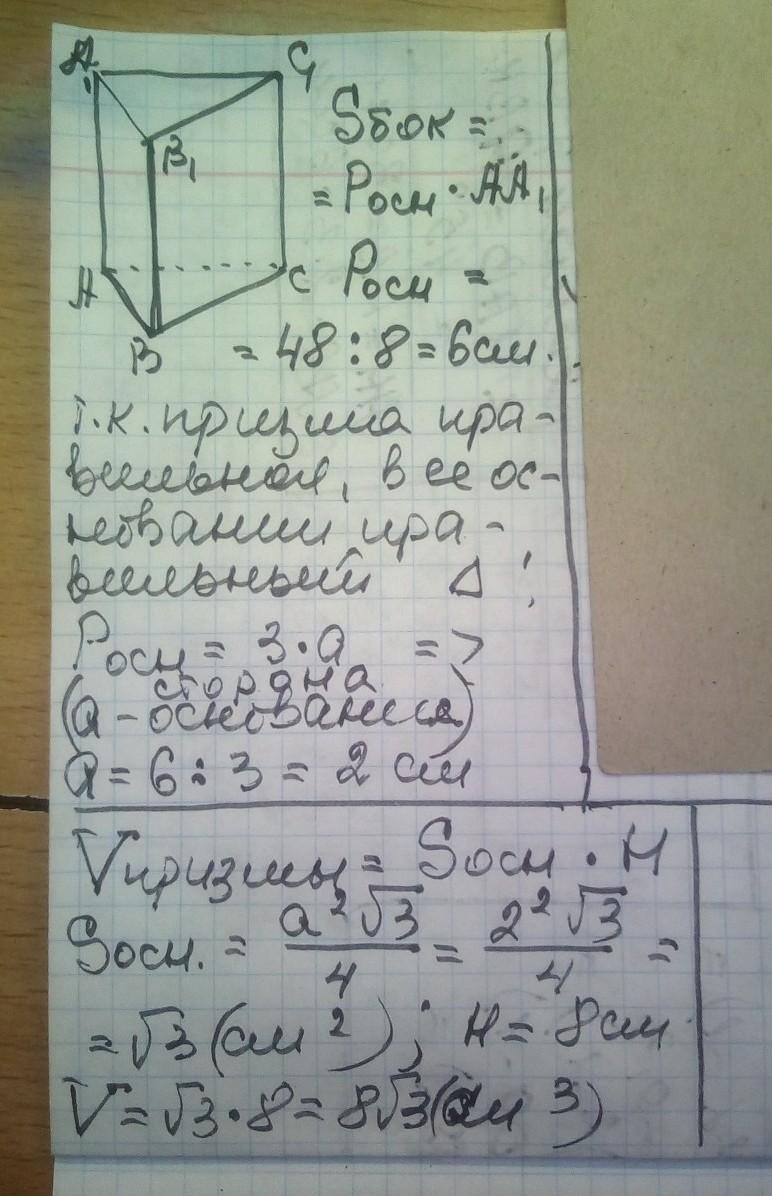 A₁
C₁
B₁
A
C
B
Sбок =
= Pосн · AA₁
Pосн =
= 48 : 8 = 6 см.
т.к. призма пра-
вильная, в ее ос-
новании пра-
вильный Δ;
Pосн = 3·a =>
сторона
(a - основания)
a = 6 : 3 = 2 см
Vпризмы = Sосн · H
Sосн. = a²√3/4 = 2²√3/4 =
= √3 (см²); H = 8 см
V = √3 · 8 = 8√3 (см³)